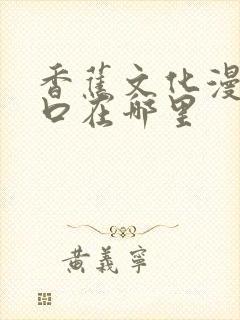 香蕉文化漫
口在哪里
黄義寧